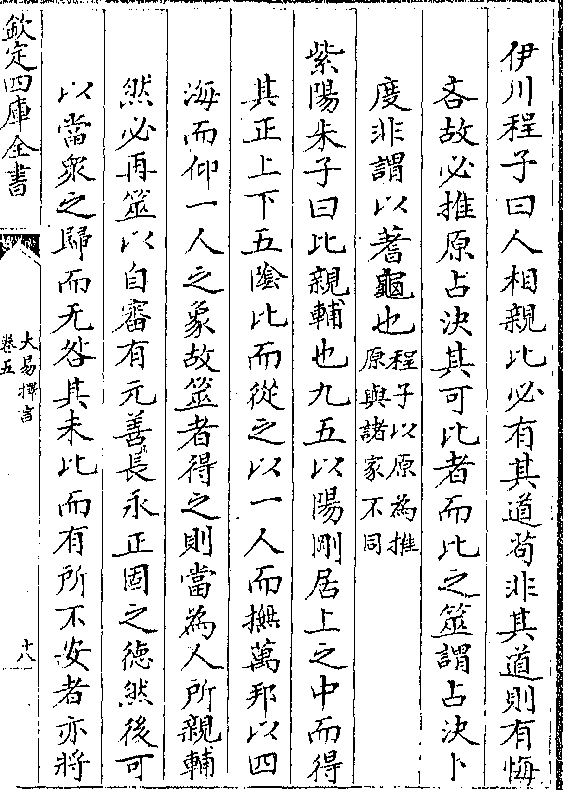 伊川程子曰人相親比必有其道茍非其道則有悔
吝故必推原占決其可比者而比之筮謂占決卜
度非謂以蓍龜也程子以原為推
原與諸家不同
紫陽朱子曰比親輔也九五以陽剛居上之中而得
其正上下五陰比而從之以一人而撫萬邦以四
海而仰一人之象故筮者得之則當為人所親輔
然必再筮以自審有元善長永正固之德然後可
以當衆之歸而无咎其未比而有所不安者亦將
欽定四庫全書
大易擇言
卷五
十八